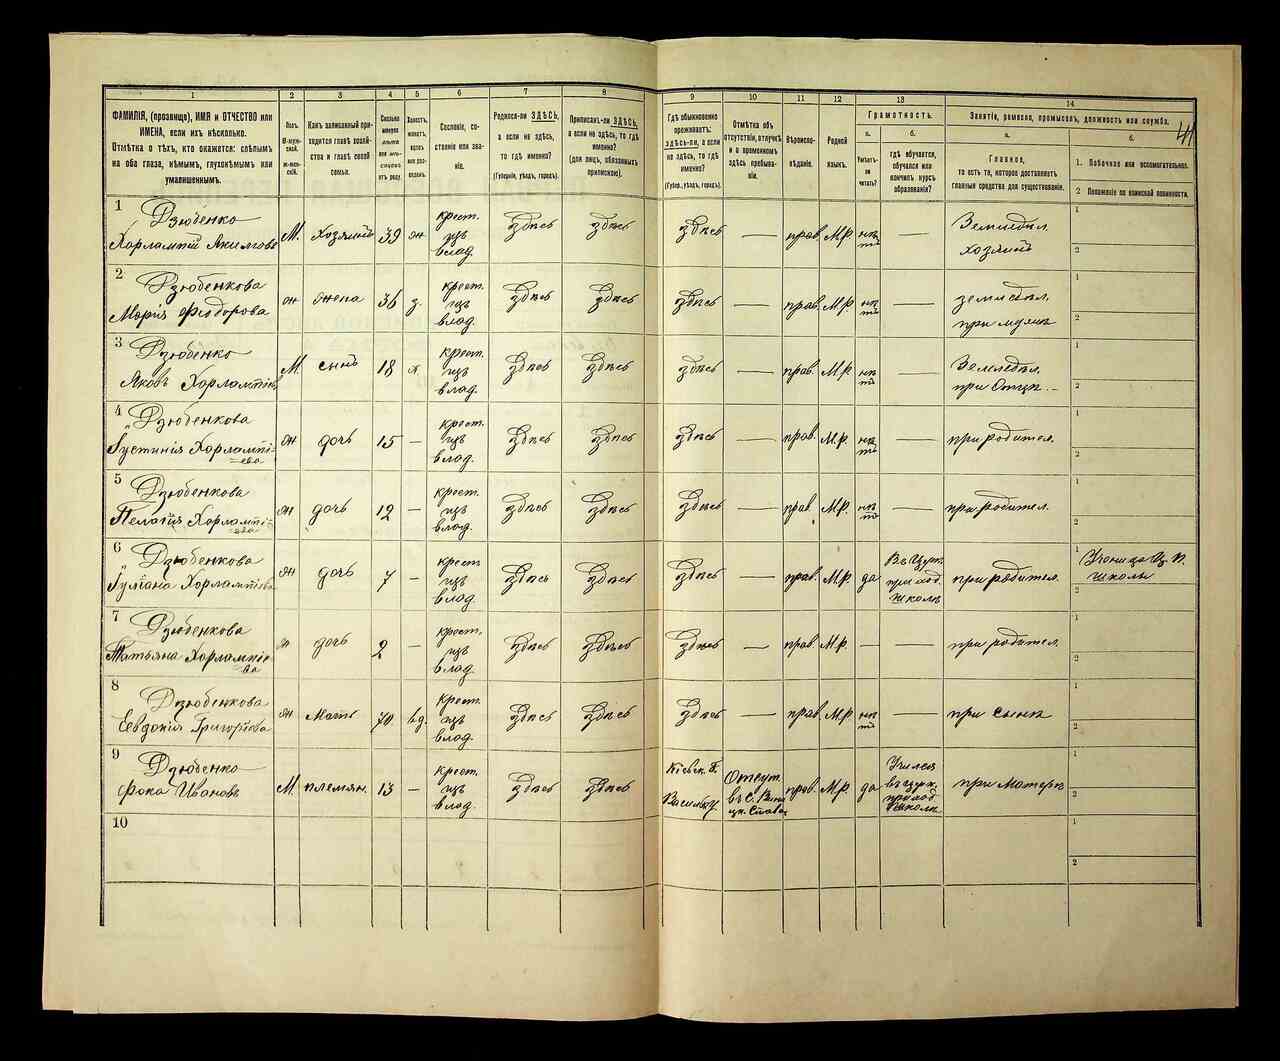 1 2 3 4 5 6 7 8 9 10 11 12 13 14
ФАМИЛІЯ, (прозвище), ИМЯ и ОТЧЕСТВО или ИМЕНА, если ихъ нѣсколько.
Отмѣтка о тѣхъ, кто окажется: слѣпымъ на оба глаза, нѣмымъ, глухонѣмымъ или умалишеннымъ.
Полъ. М-мужской. ж-женскій.
Какъ записанный приходится главѣ хозяйства и главѣ своей семьи.
Сколько минуло лѣтъ или мѣсяцевъ отъ роду.
Холостъ, женатъ, вдовъ или разведенъ.
Сословіе, состояніе или званіе.
Родился-ли ЗДѢСЬ, а если не здѣсь, то гдѣ именно?
(Губернія, уѣздъ, городъ).
Приписанъ-ли ЗДѢСЬ, а если не здѣсь, то гдѣ именно?
(для лицъ, обязанныхъ припискою).
Гдѣ обыкновенно проживаетъ: здѣсь-ли, а если не здѣсь, то гдѣ именно?
(Губер., уѣздъ, городъ).
Отмѣтка объ отсутствіи, отлучкѣ и о временномъ здѣсь пребываніи.
Вѣроисповѣданіе.
Родной языкъ.
Грамотность.
а. Умѣетъ-ли читать?
б. гдѣ обучается, обучался или кончилъ курсъ образованія?
Занятіе, ремесло, промыселъ, должность или служба.
а. Главное, то есть то, которое доставляетъ главныя средства для существованія.
б.
1. Побочное или вспомогательное.
2 Положеніе по воинской повинности.
41
1 Дзюбенко
Харлампій Якимовъ М. Хозяинъ 39 жн крест. изъ влад. здѣсь здѣсь здѣсь — прав. М.Р. нѣтъ — Земледѣл. хозяинъ 1 2
2 Дзюбенкова
Марія Федорова жн жена 36 з. крест. изъ влад. здѣсь здѣсь здѣсь — прав. М.Р. нѣтъ — земледѣл. при мужѣ 1 2
3 Дзюбенко
Яковъ Харлампіев М. сынъ 18 х. крест. изъ влад. здѣсь здѣсь здѣсь — прав. М.Р. нѣтъ — Земледѣл. при Отцѣ 1 2
4 Дзюбенкова
Іустинія Харлампіева жн дочь 15 — крест. изъ влад. здѣсь здѣсь здѣсь — прав. М.Р. нѣтъ — при родител. 1 2
5 Дзюбенкова
Пелагія Харлампіева жн дочь 12 — крест. изъ влад. здѣсь здѣсь здѣсь — прав. М.Р. нѣтъ — при родител. 1 2
6 Дзюбенкова
Іуліана Харлампіева жн дочь 7 — крест изъ влад здѣсь здѣсь здѣсь — прав. М.Р. да Въ Церк. приход. школѣ при родител. 1 Ученица Ц. П. школы 2
7 Дзюбенкова
Татьяна Харлампіева ж дочь 2 — крест. изъ влад. здѣсь здѣсь здѣсь — прав. М.Р. — — при родител. 1 2
8 Дзюбенкова
Евдокія Григорiева жн Мать 70 вд. крест. изъ влад. здѣсь здѣсь здѣсь — прав. М.Р нѣтъ — при сынѣ 1 2
9 Дзюбенко
Фока Ивановъ М. племян. 13 — крест. изъ влад. здѣсь здѣсь Кіевск. Г. Отсут. въ С. прав. М.Р. да Учился въ церк. приход. школѣ при Матери 1 2
10 1 2